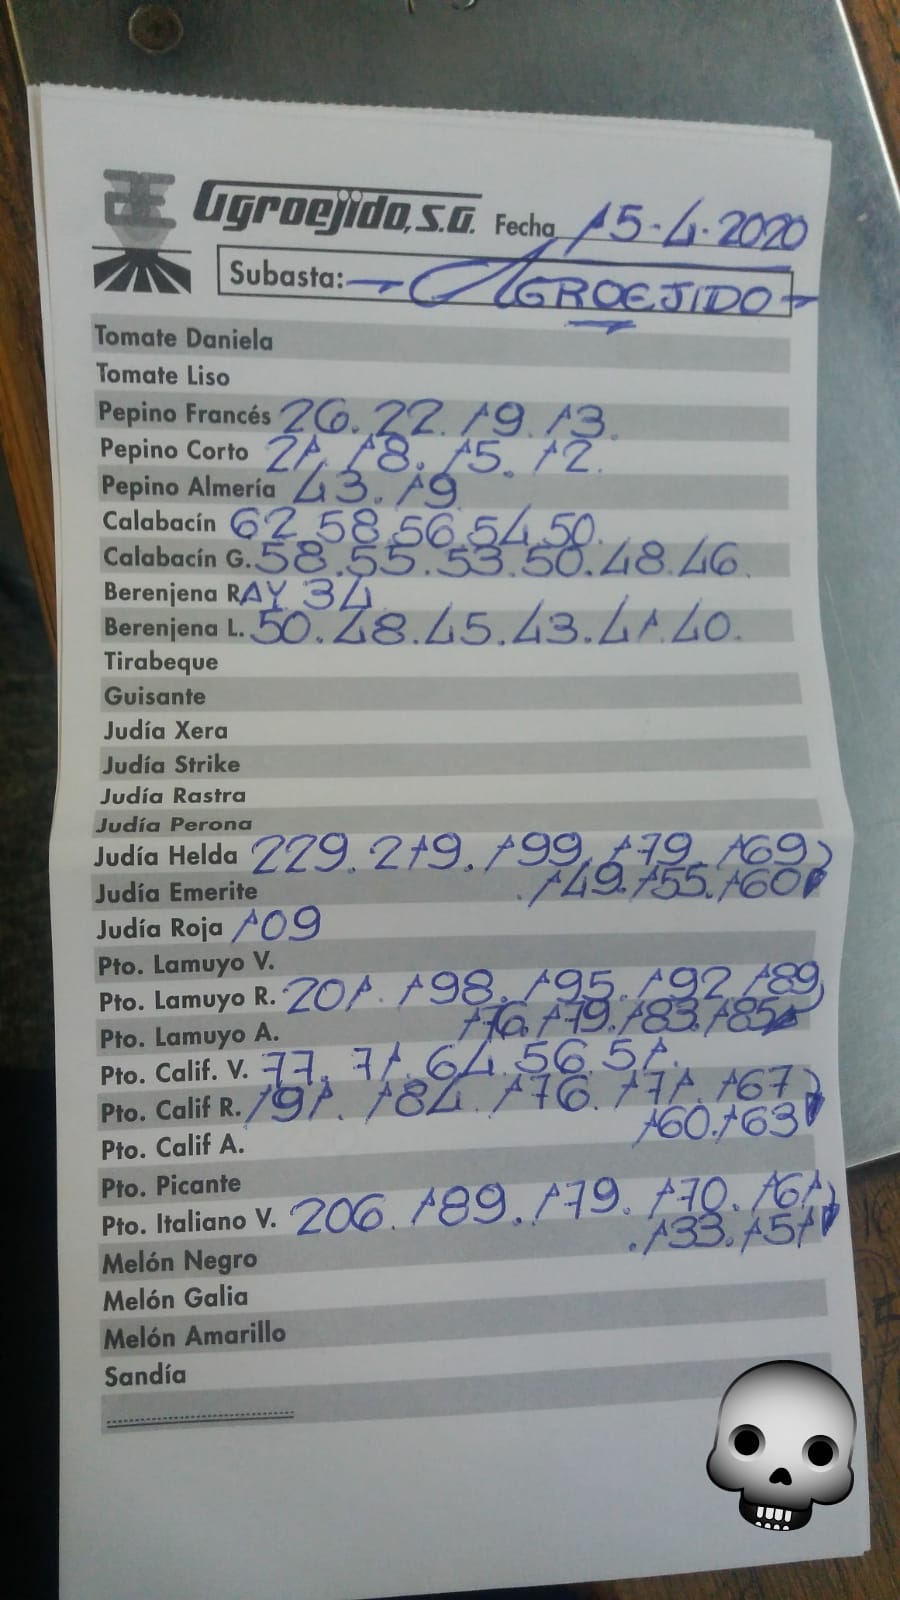 Agroejido, S.A. Fecha 15-4-2020
Subasta: - AGROEJIDO -
Tomate Daniela
Tomate Liso
Pepino Francés 26. 22. 19. 13.
Pepino Corto 21. 18. 15. 12.
Pepino Almería 43. 19
Calabacín 62.58.56.54.50.
Calabacín G. 58.55.53.50.48.46.
Berenjena RAY 34
Berenjena L. 50.48.45.43.41.40.
Tirabeque
Guisante
Judía Xera
Judía Strike
Judía Rastra
Judía Perona
Judía Helda 229. 219. 199. 179. 169
.149.155.160
Judía Emerite
Judía Roja 109
Pto. Lamuyo V.
Pto. Lamuyo R. 201. 198. 195. 192. 189
176.179.183.185
Pto. Lamuyo A.
Pto. Calif. V. 77. 71. 64.56.51.
Pto. Calif R. 191. 184. 176. 171. 167
160.163
Pto. Calif A.
Pto. Picante
Pto. Italiano V. 206. 189. 179. 170. 161
.133.151
Melón Negro
Melón Galia
Melón Amarillo
Sandía